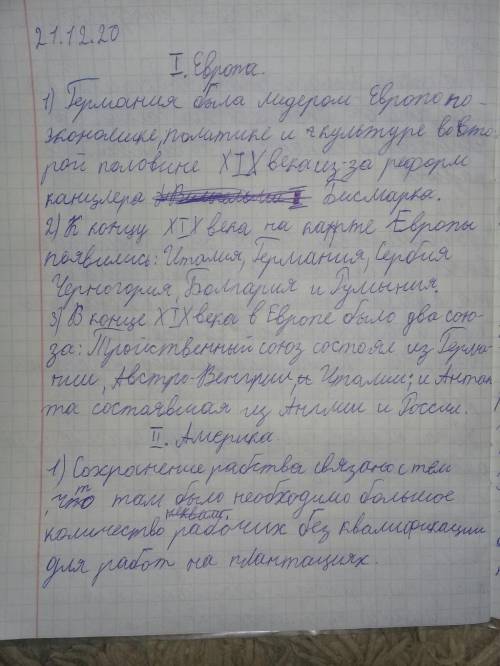 21.12.20
I. Европа.
1) Германия была лидером Европо по-
экономике, политике и культуре во вто-
рой половине XIX века из-за реформ
канцлера Бисмарка.
2) К концу XIX века на карте Европы
появились: Италия, Германия, Сербия
Черногория, Болгария и Румыния.
3) В конце XIX века в Европе было два сою-
за: Тройственный союз состоял из Герма-
нии, Австро-Венгрии, и Италии; и Антан-
та состоявшая из Англии и России.
II. Америка
1) Сохранение рабства связано с тем
, что там было необходимо большое
неквали.
количество рабочих без квалификации
для работ на плантациях.